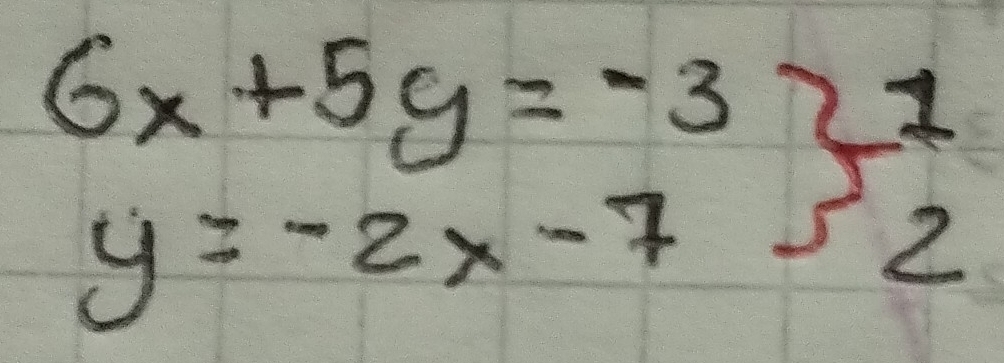 6x + 5y = -3 } 1
y = -2x - 7 } 2